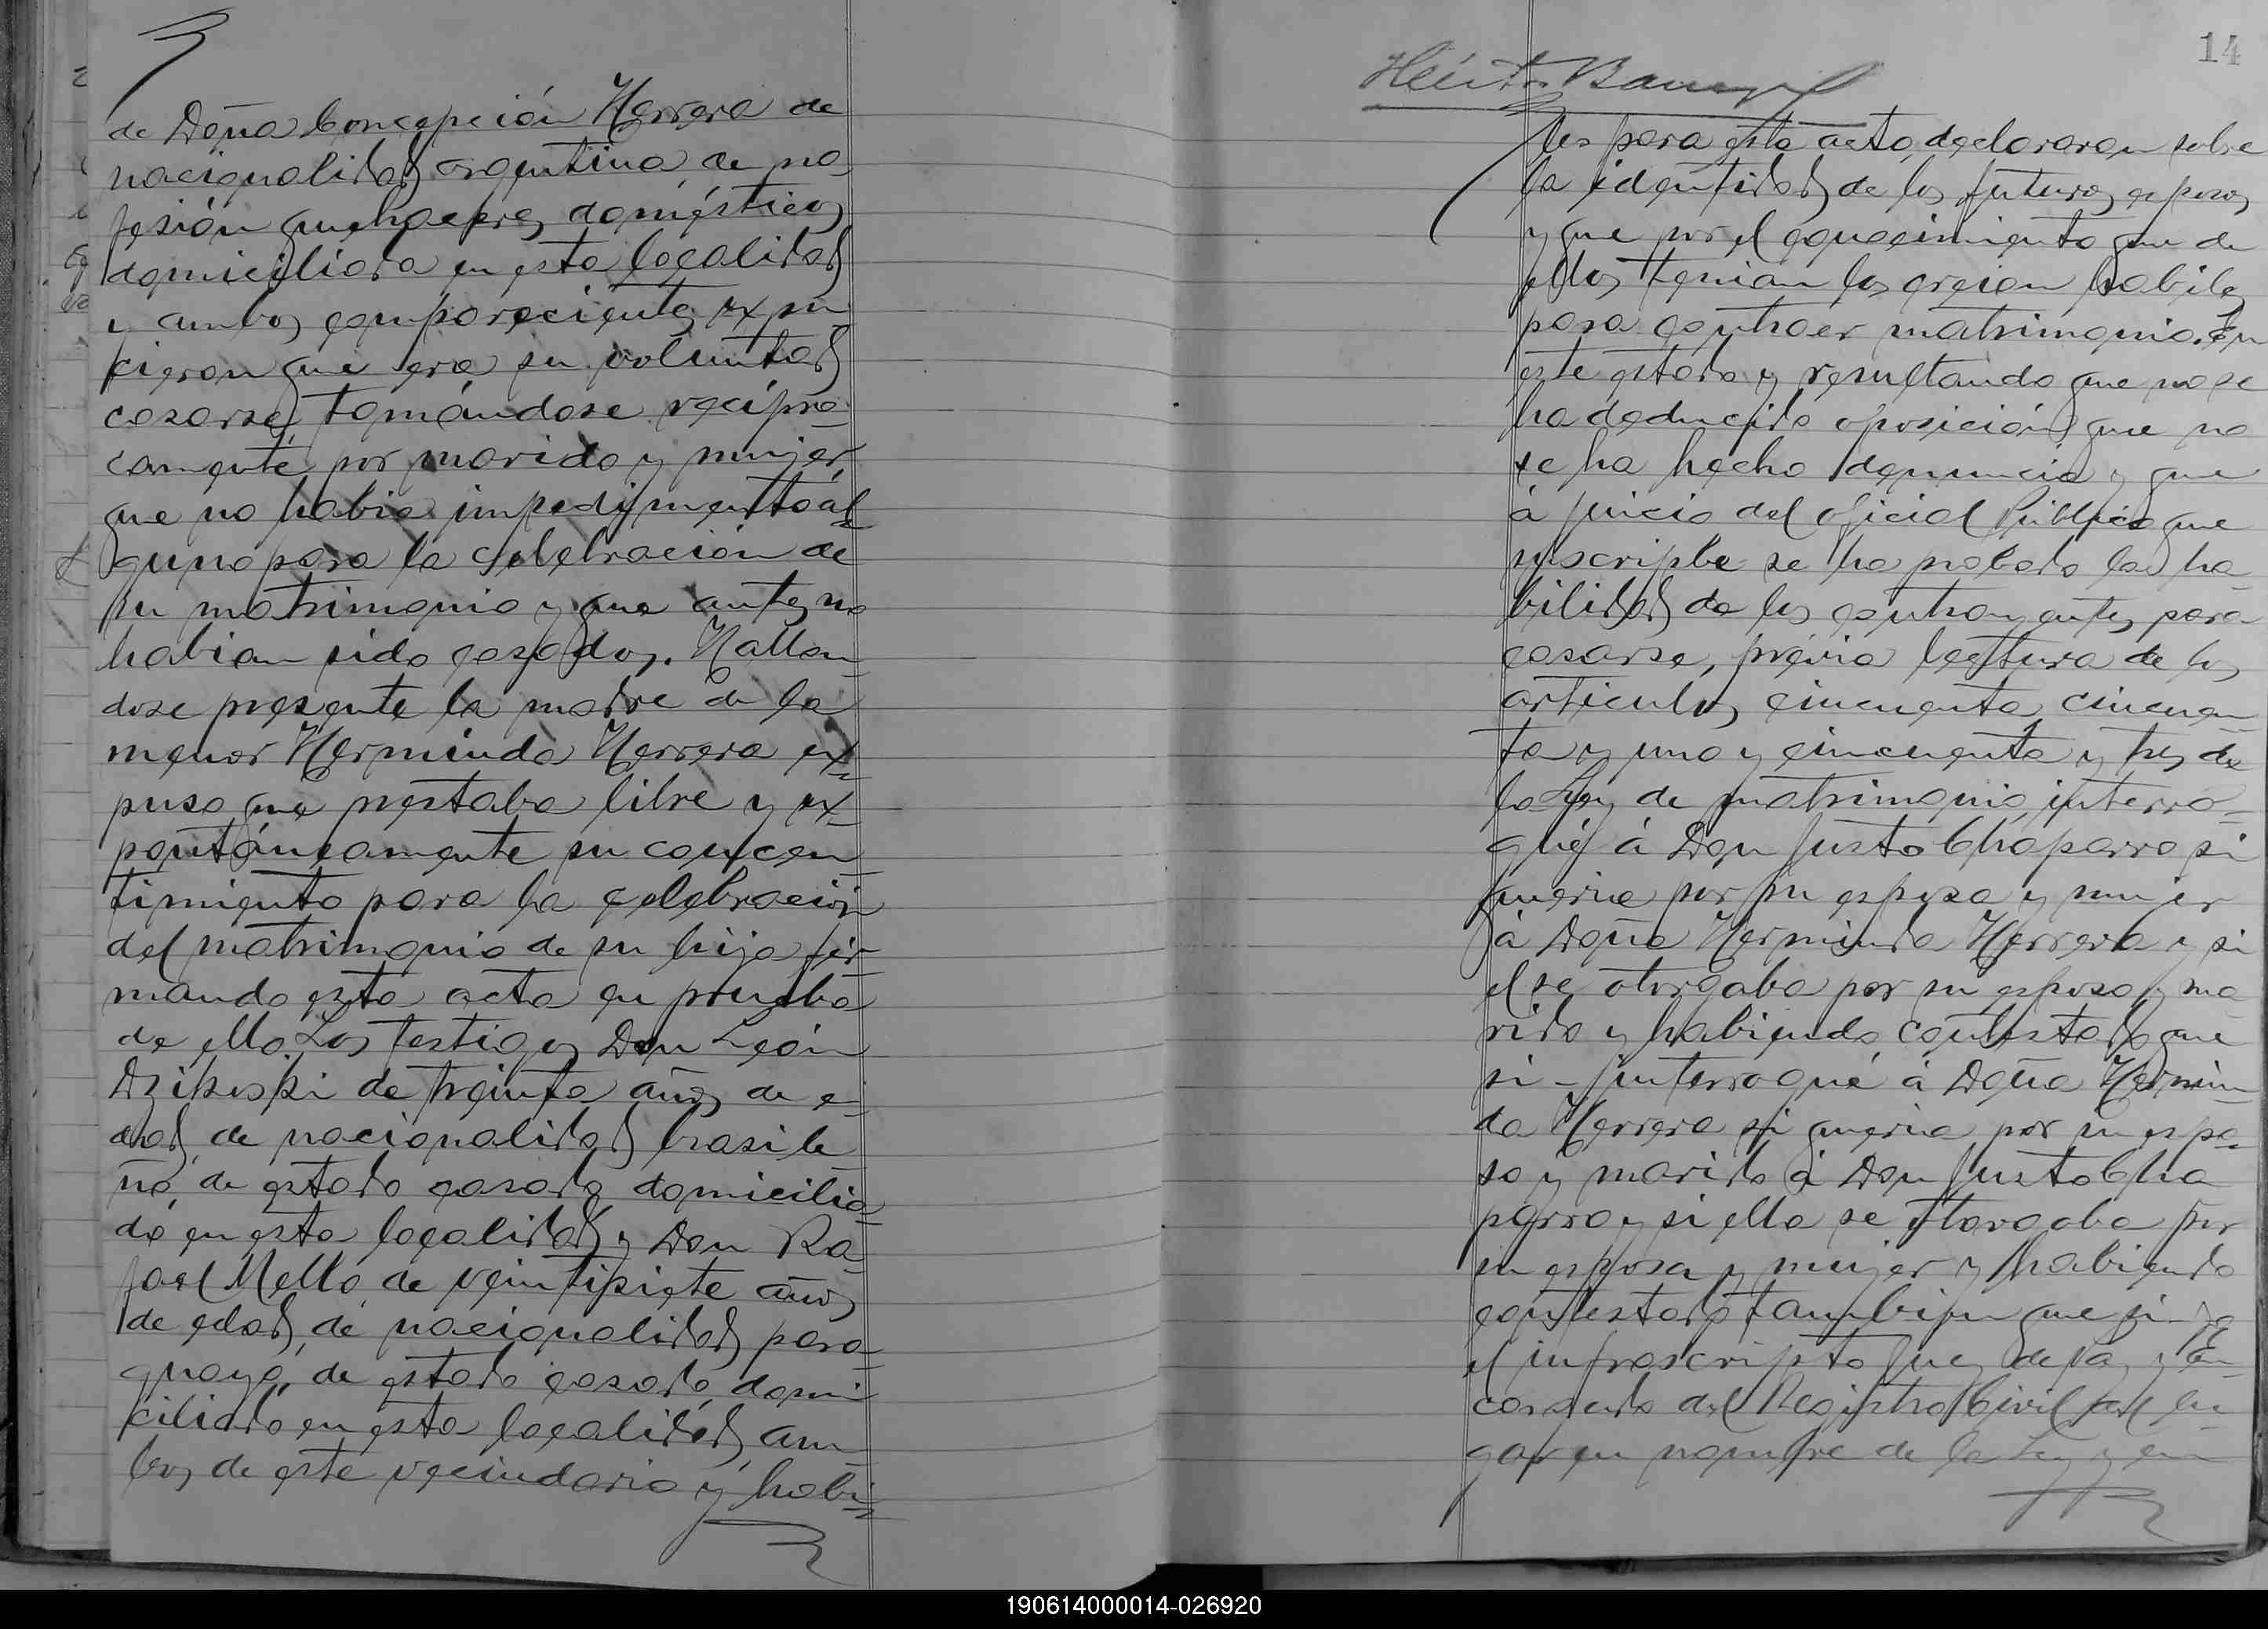 de Doña Concepción Herrera de
nacionalidad argentina, de pro
fesión quehaceres domésticos
domiciliada en esta localidad
y ambos comparecientes expu
cieron que era su voluntad
casarse, tomándose recípro-
camente por marido y mujer,
que no habia impedimento al-
guno para la celebración de
su matrimonio y que antes no
habian sido casados. Hallan
dose presente la madre de la
menor Herminda Herrera ex-
puso que prestaba libre y ex-
pontáneamente su concen
timiento para la celebración
del matrimonio de su hija fir-
mando esta acta en prueba
de ello. Los testigos Don León
de treinta años de e-
dad, de nacionalidad brasile
ña, de estado casado domicilia-
do en esta localidad y Don Ra-
fael Mello de veintisiete años
de edad, de nacionalidad para-
guaya, de estado casado, domi
ciliado en esta localidad, am-
bos de este vecindario y habi-
14
Héctor
les para este acto, declararon sobre
la identidad de los futuros esposos
y que por el conocimiento que de
ellos tenian los creian habiles
para contraer matrimonio. En
este estado y resultando que no se
ha deducido oposición, que no
se ha hecho denuncia y que
á juicio del oficial Público que
suscripbe se ha probado la ha
bilidad de los contrayentes para
casarse, prévia lectura de los
articulos cincuenta, cincuen-
ta y uno y cincuenta y tres de
la Ley de matrimonio, interro-
gué á Don Justo Chaparro si
queria por su esposa y mujer
á Doña Herminda Herrera y si
el se otorgaba por su esposo y ma
rido y habiendo contestado que
si - interrogué á Doña Hermin-
da Herrera si queria por su espo-
so y marido á Don Justo Cha
parro y si ella se otorgaba por
su esposa y mujer y habiendo
contestado tambien que si - Yo
el infrascripto Juez de Paz y En-
cargado del Registro Civil del lu
gar en nombre de la Ley y en
190614000014-026920